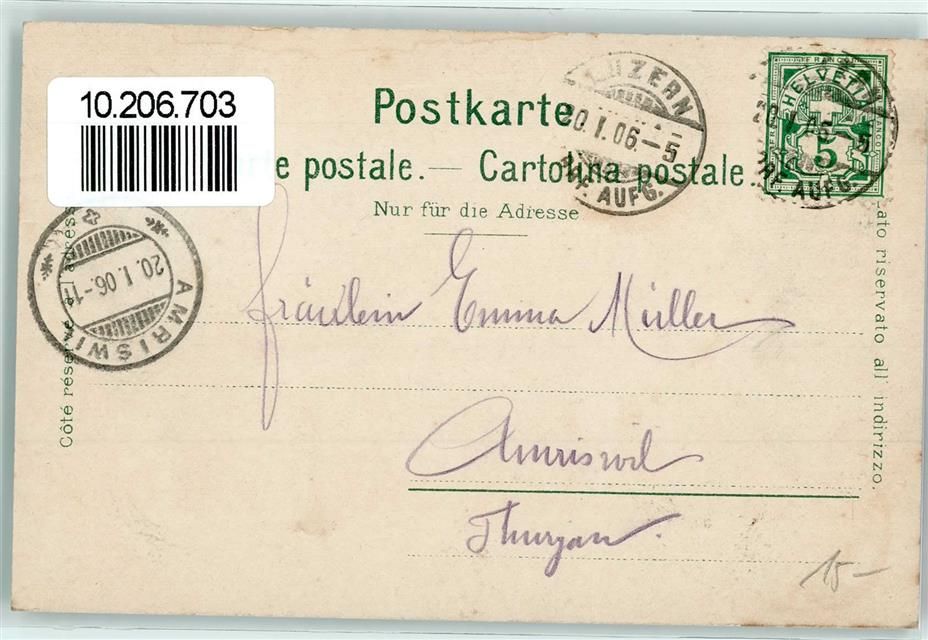 10.206.703
Postkarte
e postale. — Cartolina postale.
Nur für die Adresse
LUZERN
20.I.06.-5
BRF. AUFG.
FRANCO
HELVETIA
5
AMRISWIL
20.I.06.-11
Côté réservé à l'adresse
Lato riservato all indirizzo.
Fräulein Emma Müller
Amriswil
Thurgau.
15-